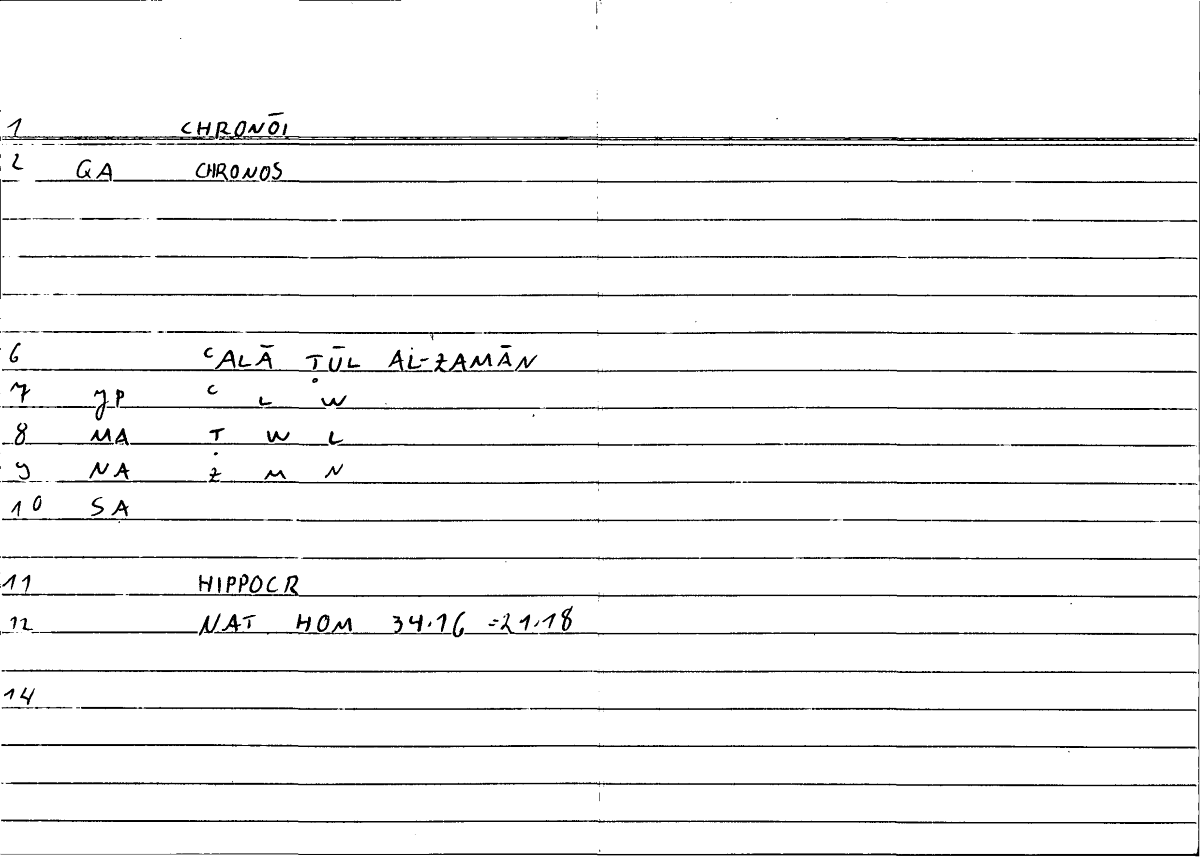 1 CHRONŌI
2 GA CHRONOS
6 ʿALĀ ṬŪL AL-ZAMĀN
7 JP ʿ L Ẇ
8 MA Ṭ W L
9 NA Z M N
10 SA
11 HIPPOCR
12 NAT HOM 34.16 =21.18
14